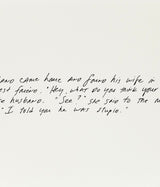 came home and found his wife in
"Hey, what do you think you're
husband. "See?" she said to the
"I told you he was stupid."